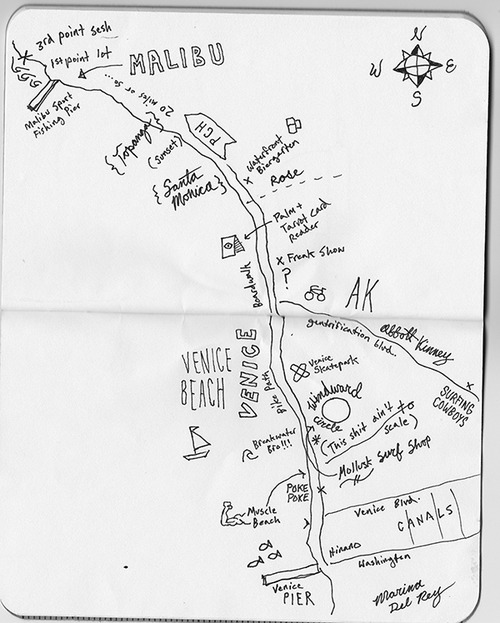 3rd point sesh
1st point lot
MALIBU
N
W
E
S
20 miles or so...
Malibu Sport
Fishing Pier
{Topanga}
(sunset)
PCH
{Santa
Monica}
Waterfront
Biergarten
x
Rose
Palm +
Tarot Card
Reader
x Freak Show
?
Boardwalk
AK
gentrification blvd.
Abbott Kinney
x
SURFING
COWBOYS
VENICE
BEACH
VENICE
Bike Path
Venice
Skatepark
Windward
circle
(This shit ain't to
scale)
Breakwater
Bro!!!
Mollusk Surf Shop
POKE
POKE
x
Muscle
Beach
Venice Blvd.
CANALS
Hinano
Washington
Venice
PIER
Marina
Del Rey